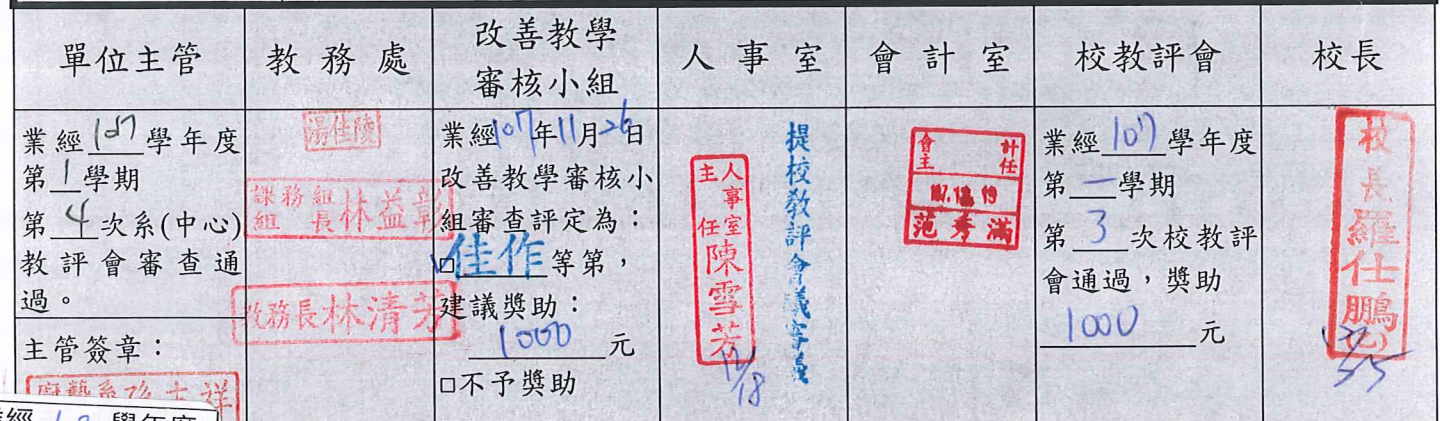 單位主管
教務處
改善教學
審核小組
人事室
會計室
校教評會
校長
業經107學年度
第1學期
第4次系(中心)
教評會審查通
過。
主管簽章：
湯佳陵
課務組
組長林益彰
教務長林清芳
業經107年11月26日
改善教學審核小
組審查評定為：
□佳作等第，
建議獎助：
1000元
□不予獎助
人事室
主任陳雪芳
12/18
提校教評會議審議
會計
主任
107.12.19
范秀滿
業經107學年度
第一學期
第3次校教評
會通過，獎助
1000元
校長羅仕鵬
學年度